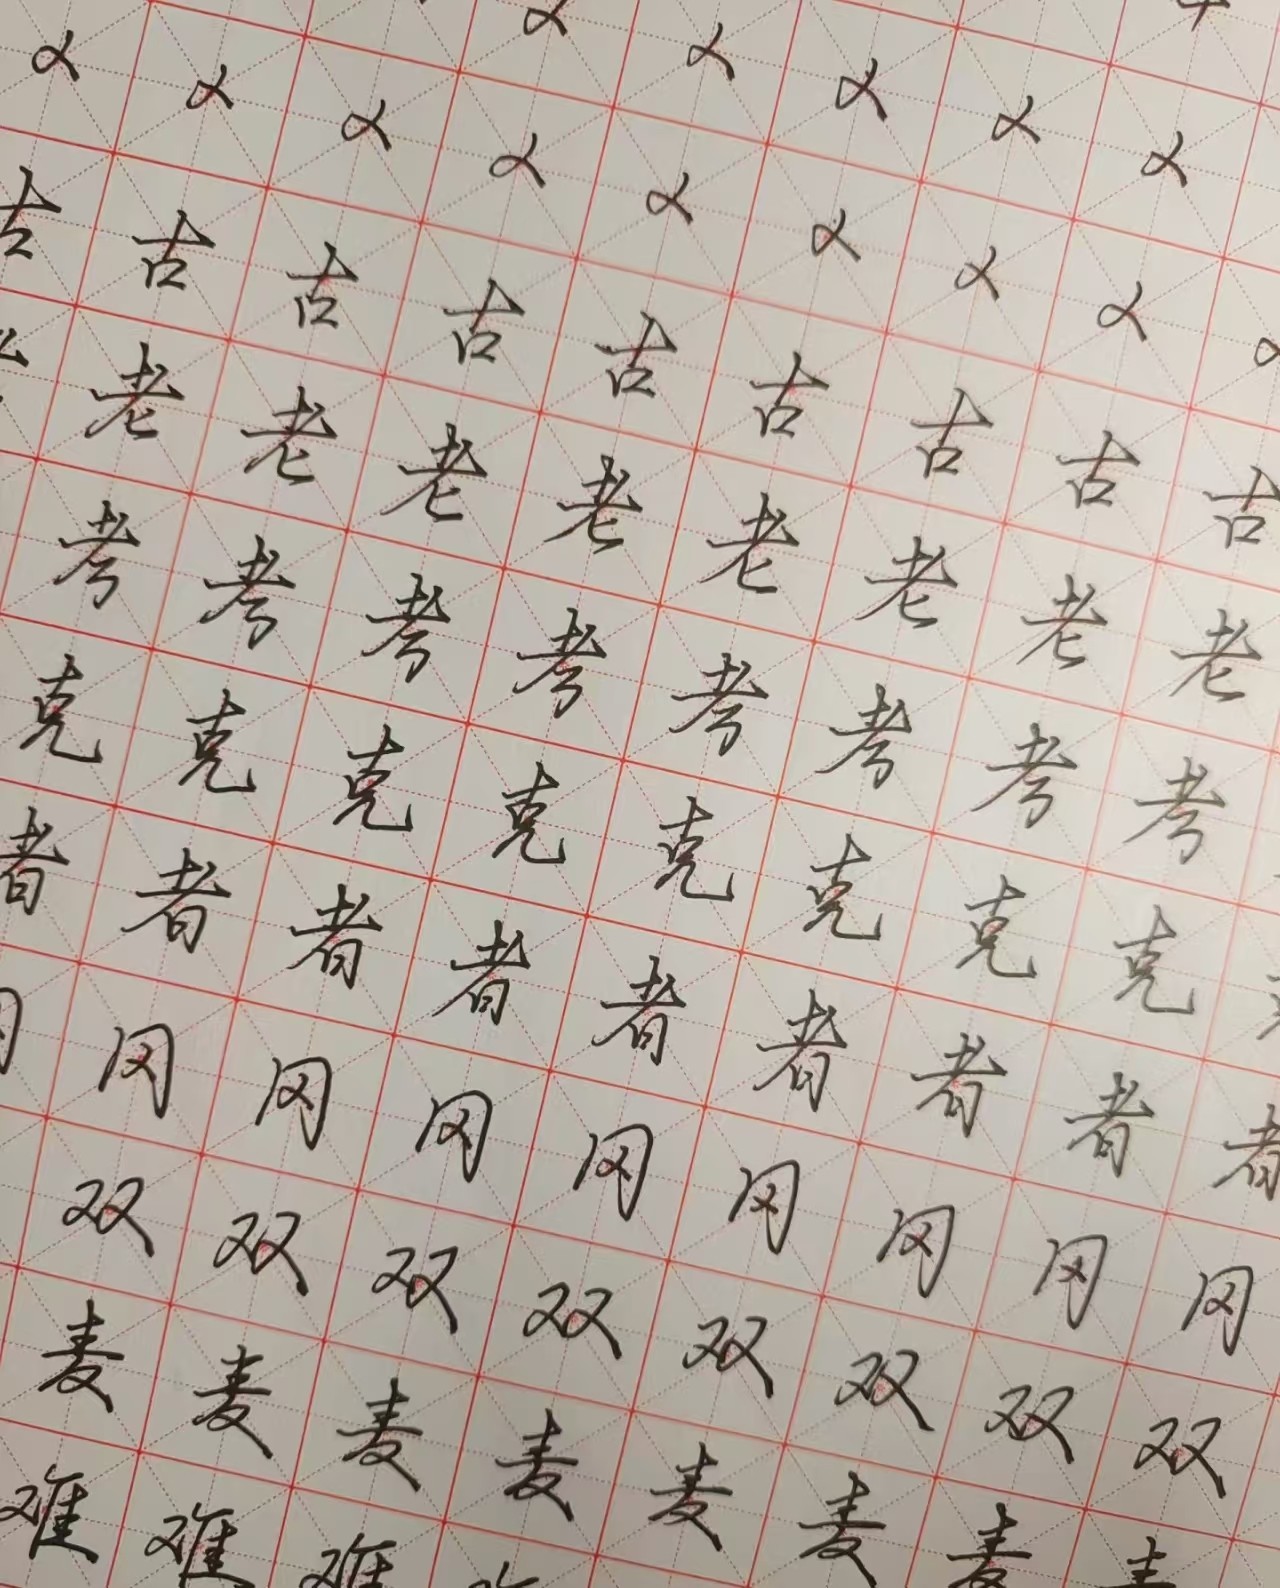 乂 乂 乂 乂 乂
乂 乂 乂 乂 乂 乂 乂 乂 乂
古 古 古 古 古 古 古 古 古
老 老 老 老 老 老 老 老
考 考 考 考 考 考 考 考
克 克 克 克 克 克 克 克
者 者 者 者 者 者 者 者 者
冈 冈 冈 冈 冈 冈 冈 冈
双 双 双 双 双 双 双 双
麦 麦 麦 麦 麦 麦 麦 麦
难 难 难